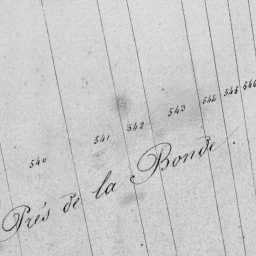 540 541 542 543 544 545 546
Prés de la Bonde.